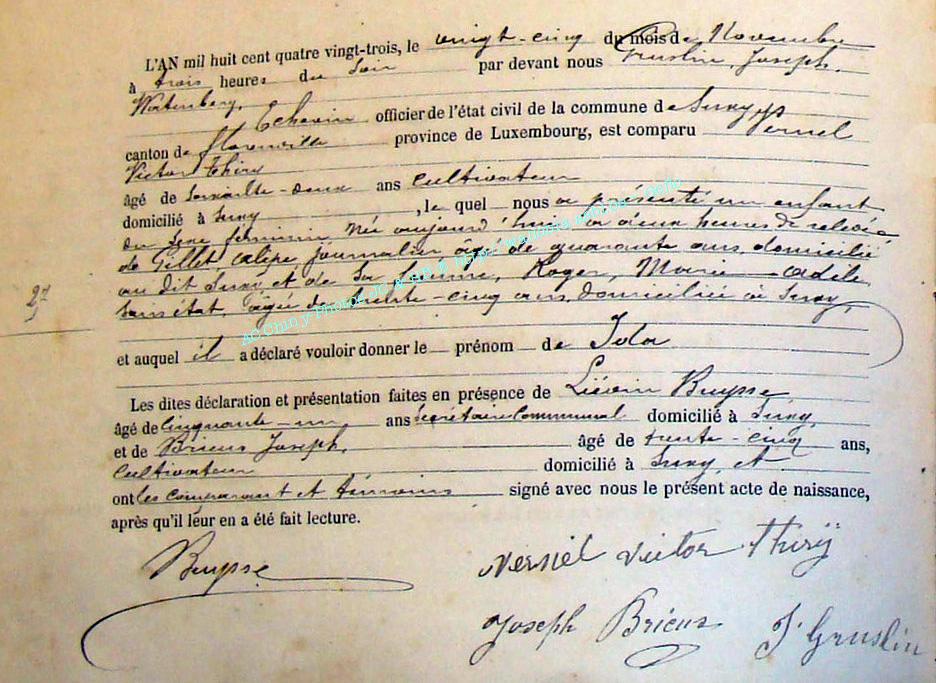 L'AN mil huit cent quatre vingt-trois, le vingt-cinq du mois de Novembre
à trois heures du soir par devant nous Gruslin, Joseph,
échevin officier de l'état civil de la commune de Suxy,
canton de Florenville province de Luxembourg, est comparu
Victor Thiry
âgé de soixante-deux ans cultivateur
domicilié à Suxy, le quel nous a présenté un enfant
du sexe féminin née aujourd'hui à deux heures de relevée
de Gillet journalier âgé de quarante ans domicilié
au dit Suxy, et de sa femme, Roger, Marie
sans état, âgée de trente-cinq ans, domiciliée à Suxy,
27
et auquel il a déclaré vouloir donner le prénom de Ida
Les dites déclaration et présentation faites en présence de Liévin Buysse,
âgé de cinquante-un ans secrétaire communal domicilié à Suxy,
et de Brieus Joseph, âgé de trente-cinq ans,
cultivateur domicilié à Suxy, et
ont les comparant et témoins signé avec nous le présent acte de naissance,
après qu'il leur en a été fait lecture.
Buysse Victor Thiry
Joseph Brieus J. Gruslin